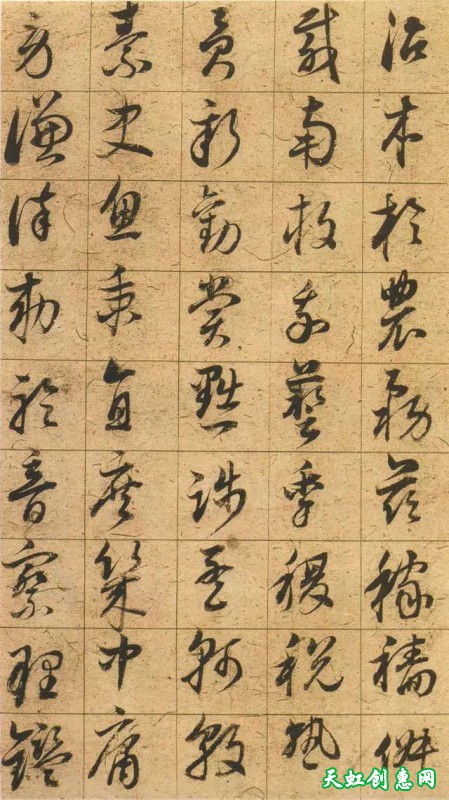 治本於農務茲稼穡俶
載南畝我藝黍稷稅熟
貢新勸賞黜陟孟軻敦
素史魚秉直庶幾中庸
勞謙謹勅聆音察理鑑
天虹创惠网